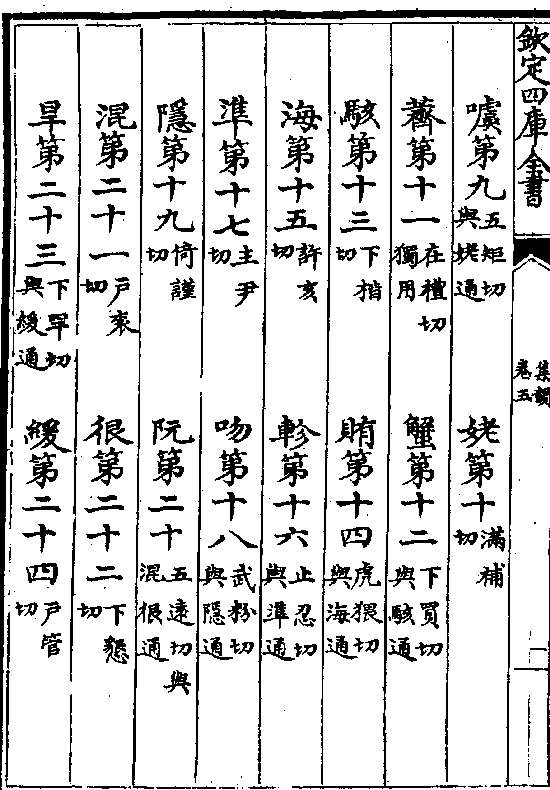 欽定四庫全書
集韻
卷五
噳第九五矩切與姥通 姥第十滿補切
薺第十一在禮切獨用 蟹第十二下買切與駭通
駭第十三下楷切 賄第十四虎猥切與海通
海第十五許亥切 軫第十六止忍切與準通
準第十七主尹切 吻第十八武粉切與隱通
隱第十九倚謹切 阮第二十五遠切與混很通
混第二十一戶衮切 很第二十二下懇切
旱第二十三下罕切與緩通 緩第二十四戶管切